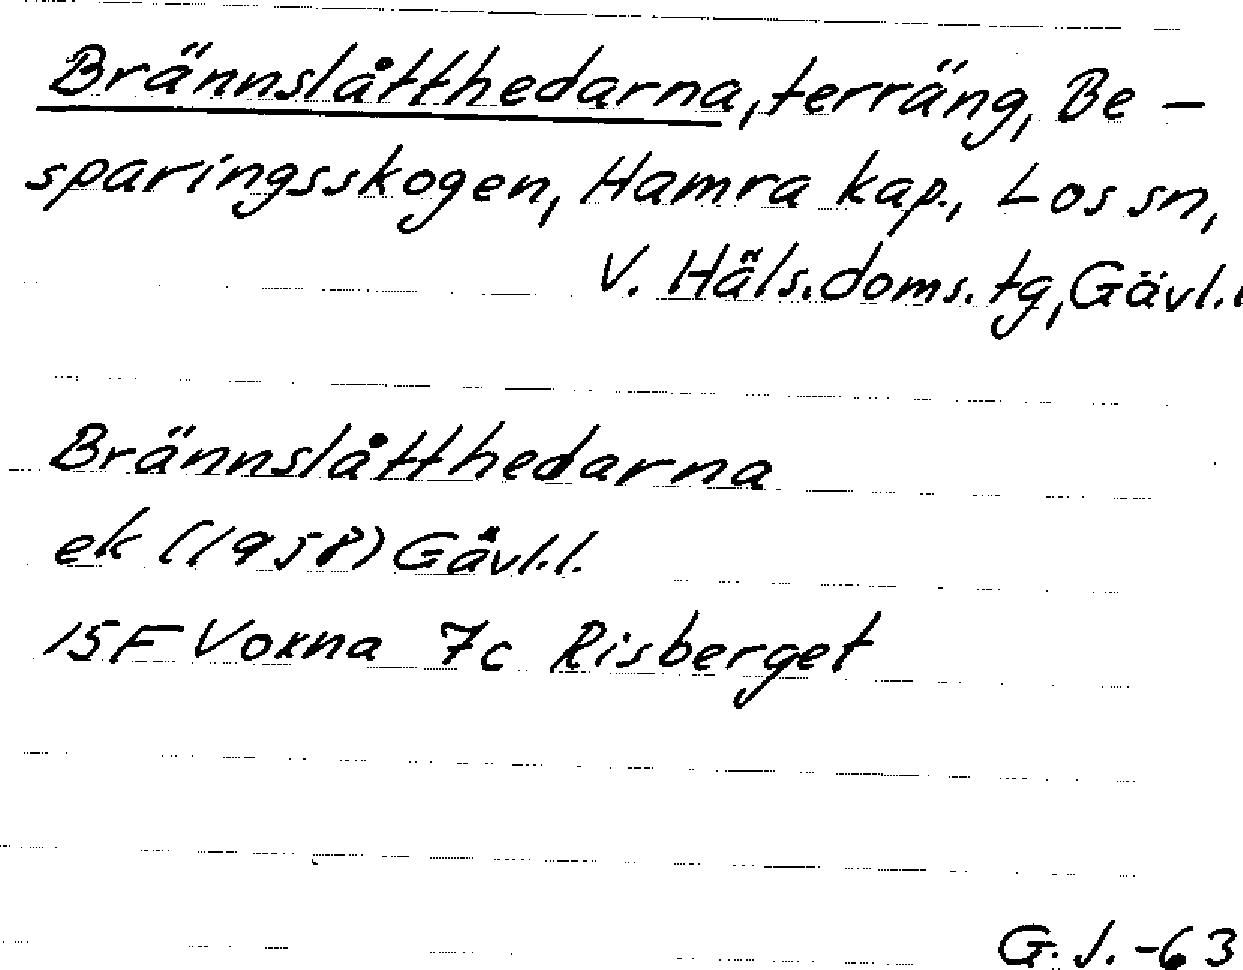 Brännslåtthedarna, terräng, Be -
sparingsskogen, Hamra kap., Los sn,
V. Häls. doms. tg, Gävl.l
Brännslåtthedarna
ek (1958) Gävl.l.
15F Voxna 7c Risberget
G.J.-63